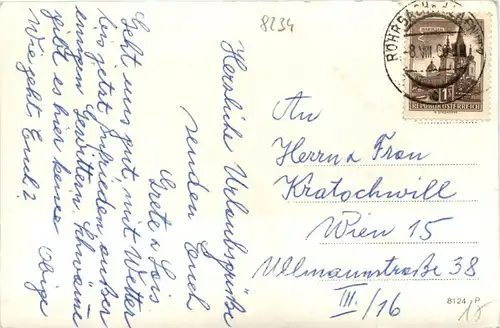 8234
Herzliche Urlaubsgrüße
senden Euch
Grete u. Lois
Geht uns gut, mit Wetter
bis jetzt zufrieden außer
einigen Gewittern. Schwäme
gibt es hier keine
Wie geht Euch? Obige
8.VIII.
1 S
REPUBLIK ÖSTERREICH
An
Herrn u. Frau
Kratochwill
Wien 15
Ullmannstraße 38
III/16
8124 P
18